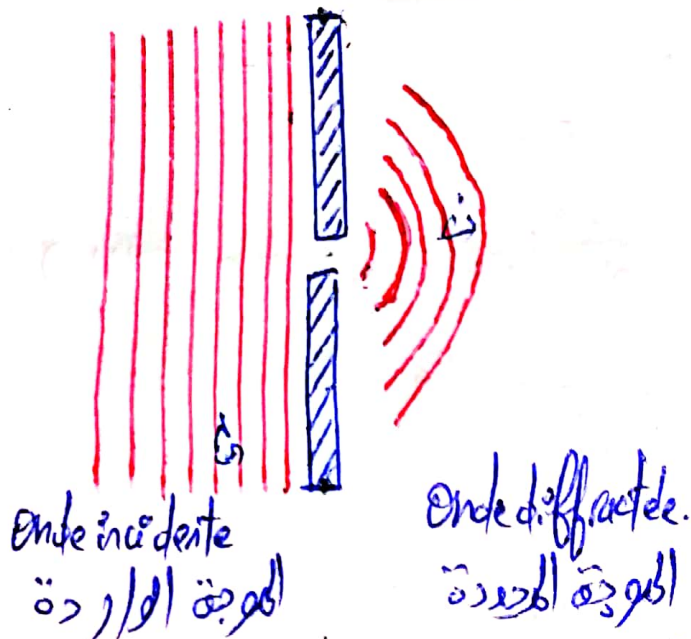 Onde incidente
الموجة الواردة
Onde diffractée.
الموجة